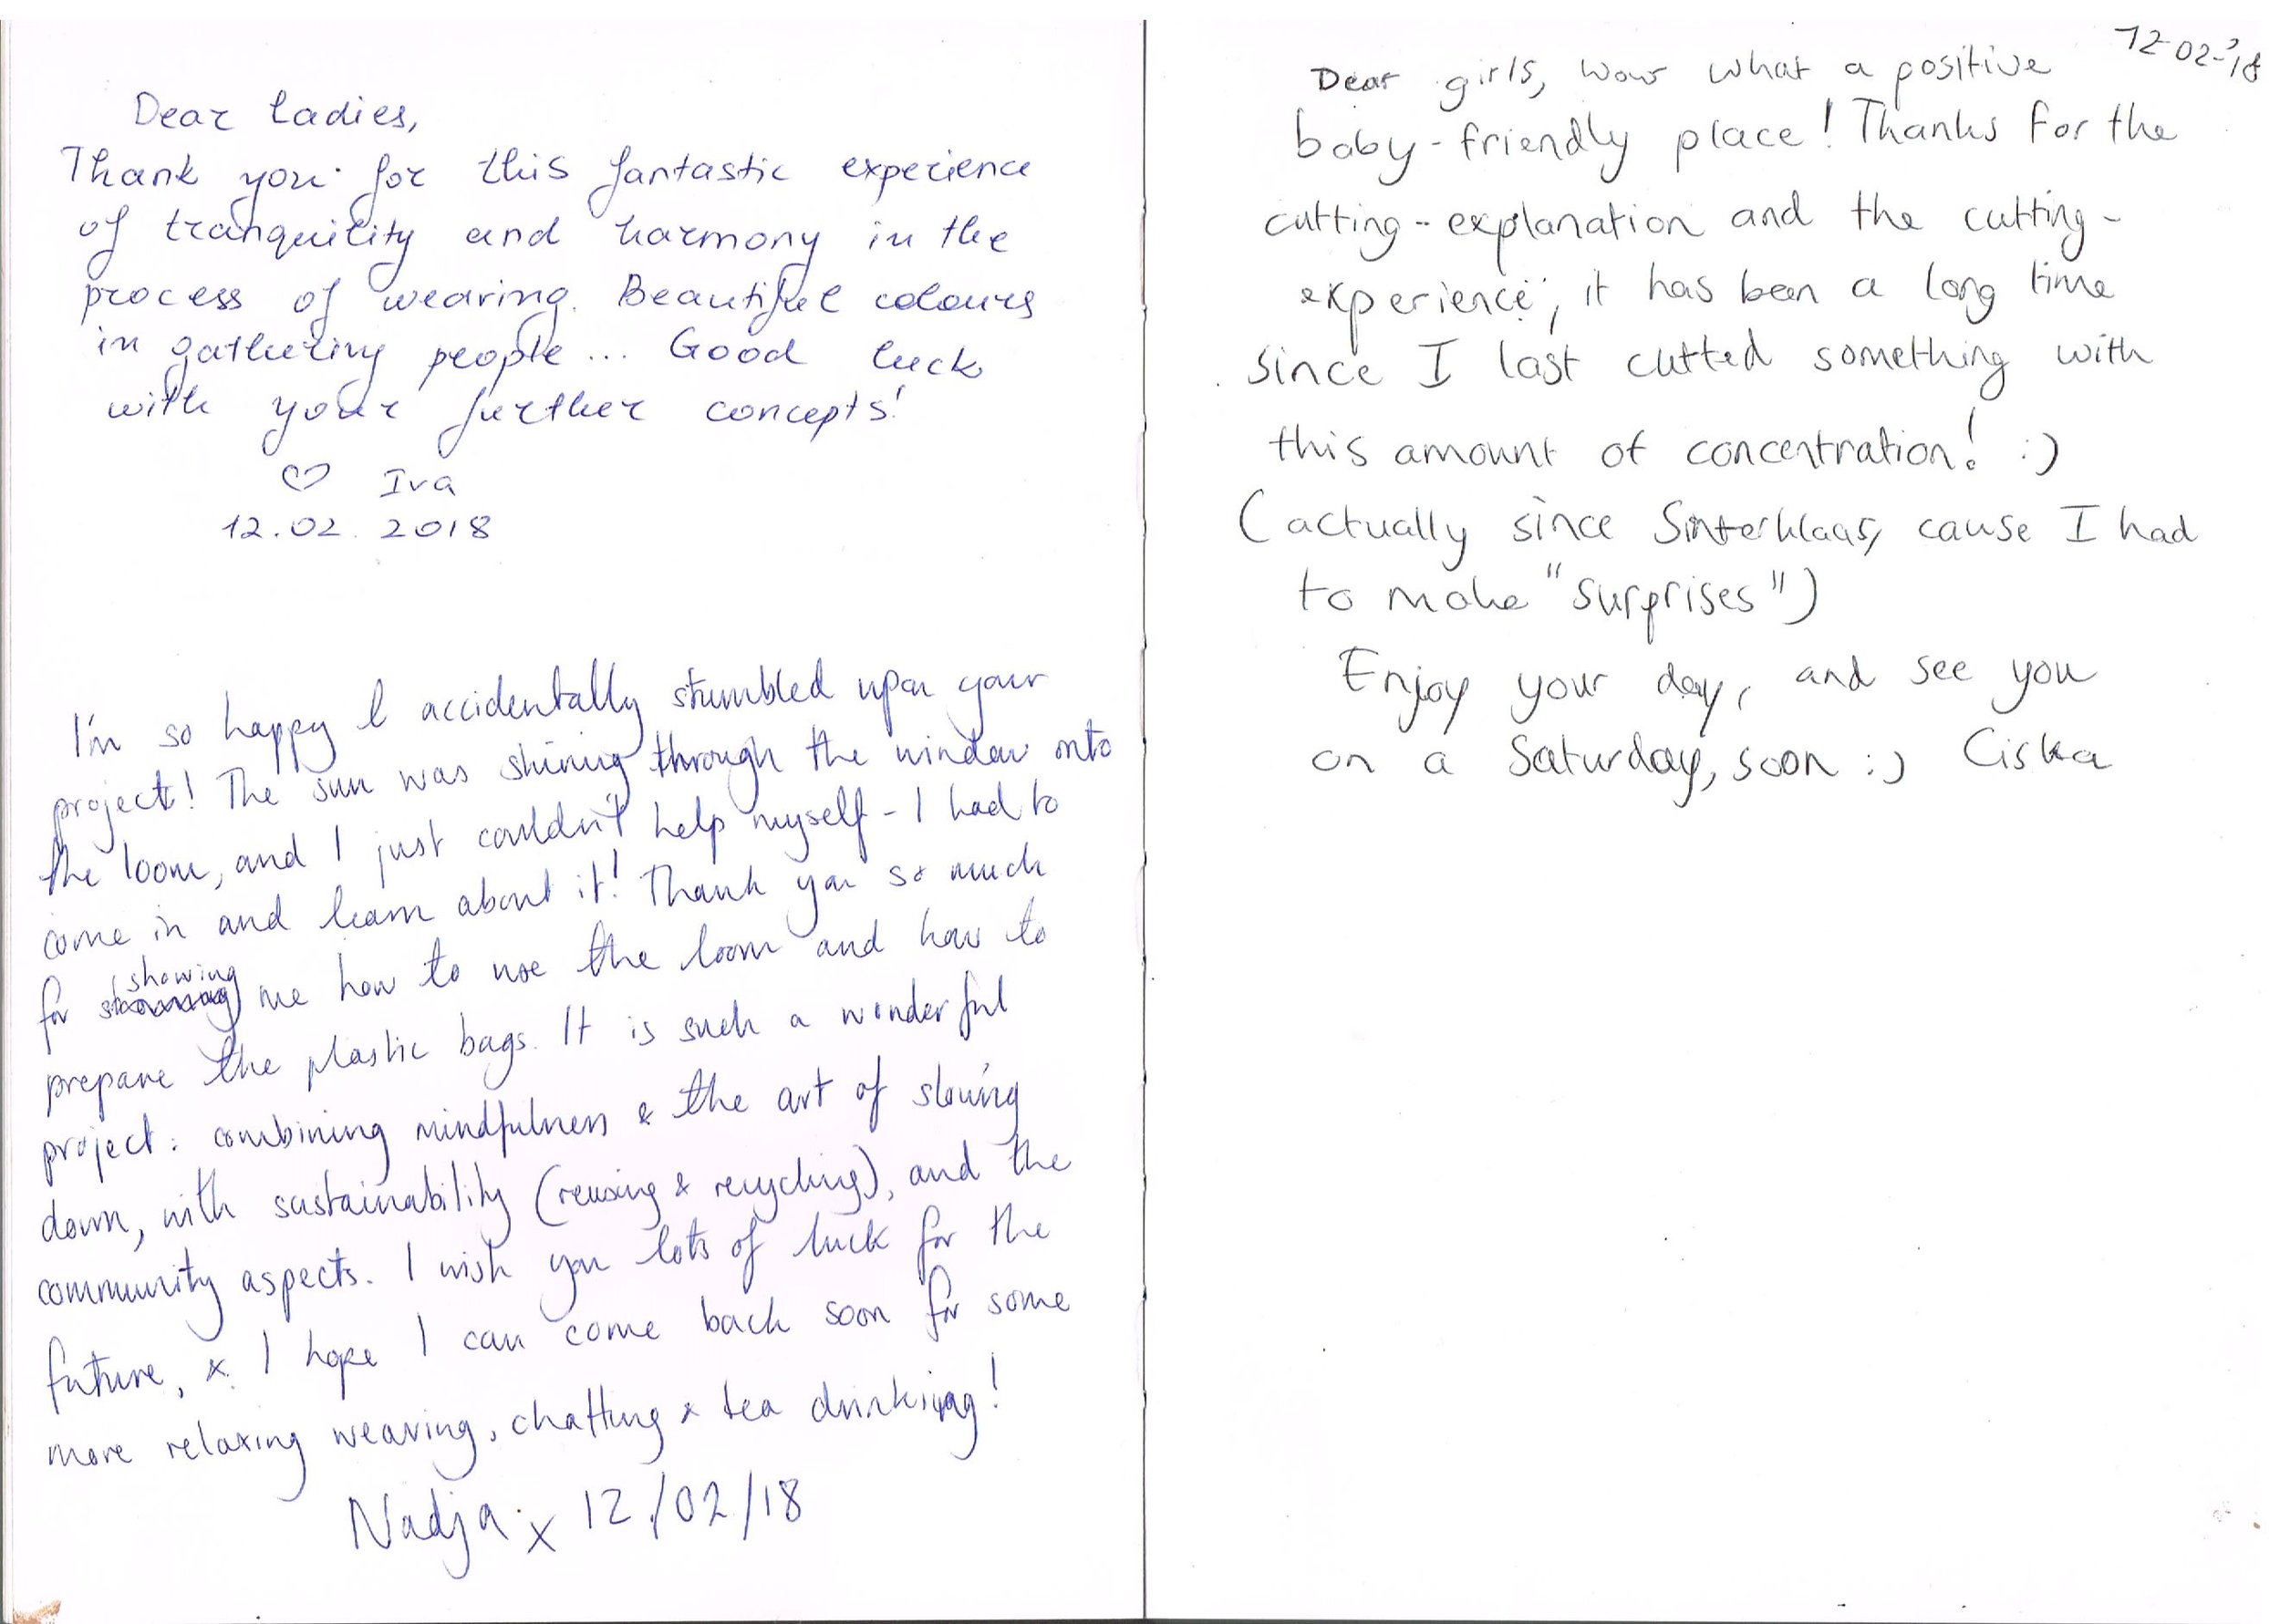 Dear Ladies,
Thank you for this fantastic experience
of tranquility and harmony in the
process of weaving. Beautiful colours
in gathering people... Good luck
with your further concepts!
♡ Iva
12.02.2018
I'm so happy I accidentally stumbled upon your
project! The sun was shining through the window onto
the loom, and I just couldn't help myself - I had to
come in and learn about it! Thank you so much
for showing me how to use the loom and how to
prepare the plastic bags. It is such a wonderful
project: combining mindfulness & the art of slowing
down, with sustainability (reusing & recycling), and the
community aspects. I wish you lots of luck for the
future, & I hope I can come back soon for some
more relaxing weaving, chatting & tea drinking!
Nadja x 12/02/18
12-02-'18
Dear girls, wow what a positive
baby-friendly place! Thanks for the
cutting-explanation and the cutting-
experience, it has been a long time
since I last cutted something with
this amount of concentration! :)
(actually since Sinterklaas, cause I had
to make "surprises")
Enjoy your day, and see you
on a Saturday, soon :) Ciska